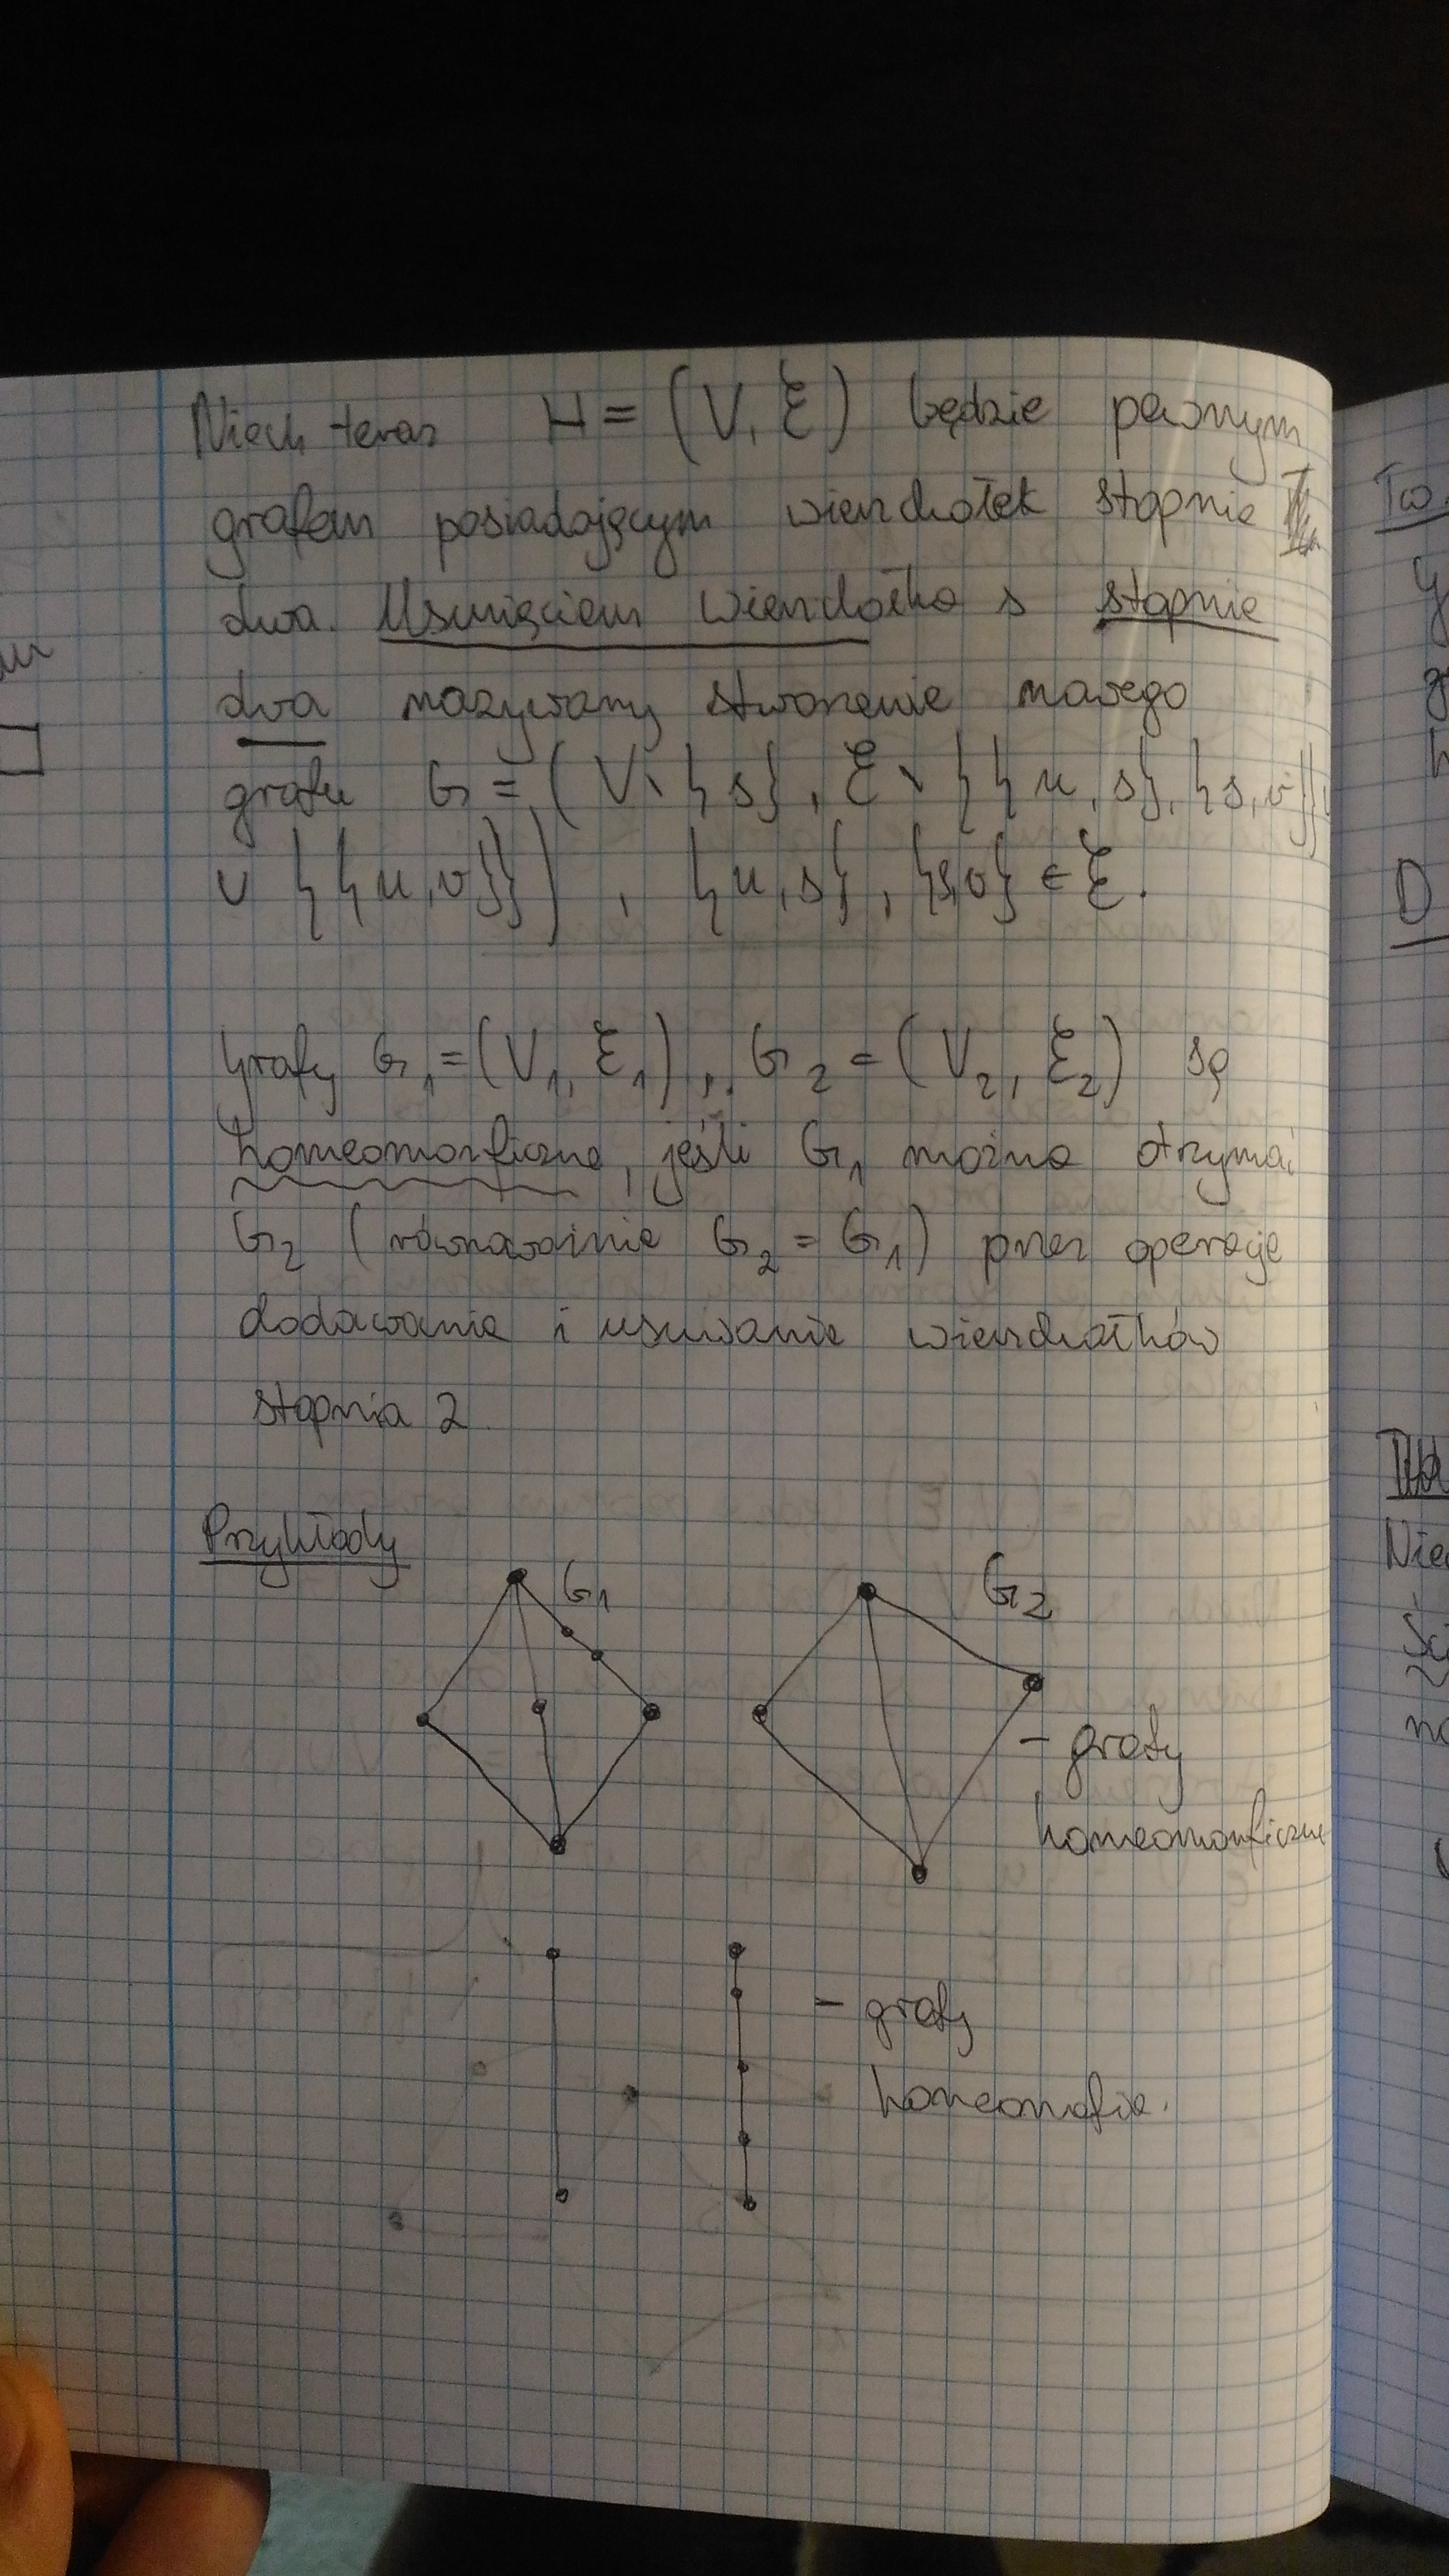 Niech teraz H = (V, ℰ) będzie pewnym
grafem posiadającym wierzchołek stopnia
dwa. Usunięciem wierzchołka s stopnia
dwa nazywamy stworzenie nowego
grafu G = (V \ {s}, ℰ \ {{u, s}, {s, v}}
∪ {{u, v}}), {u, s}, {s, v} ∈ ℰ.
Grafy G₁ = (V₁, ℰ₁), G₂ = (V₂, ℰ₂) są
homeomorficzne, jeśli G₁ można otrzymać
G₂ (równoważnie G₂ = G₁) przez operacje
dodawania i usuwania wierzchołków
stopnia 2.
Przykłady
G₁ G₂
- grafy
homeomorficzne
- grafy
homeomofic.
Tw.
D
Nie